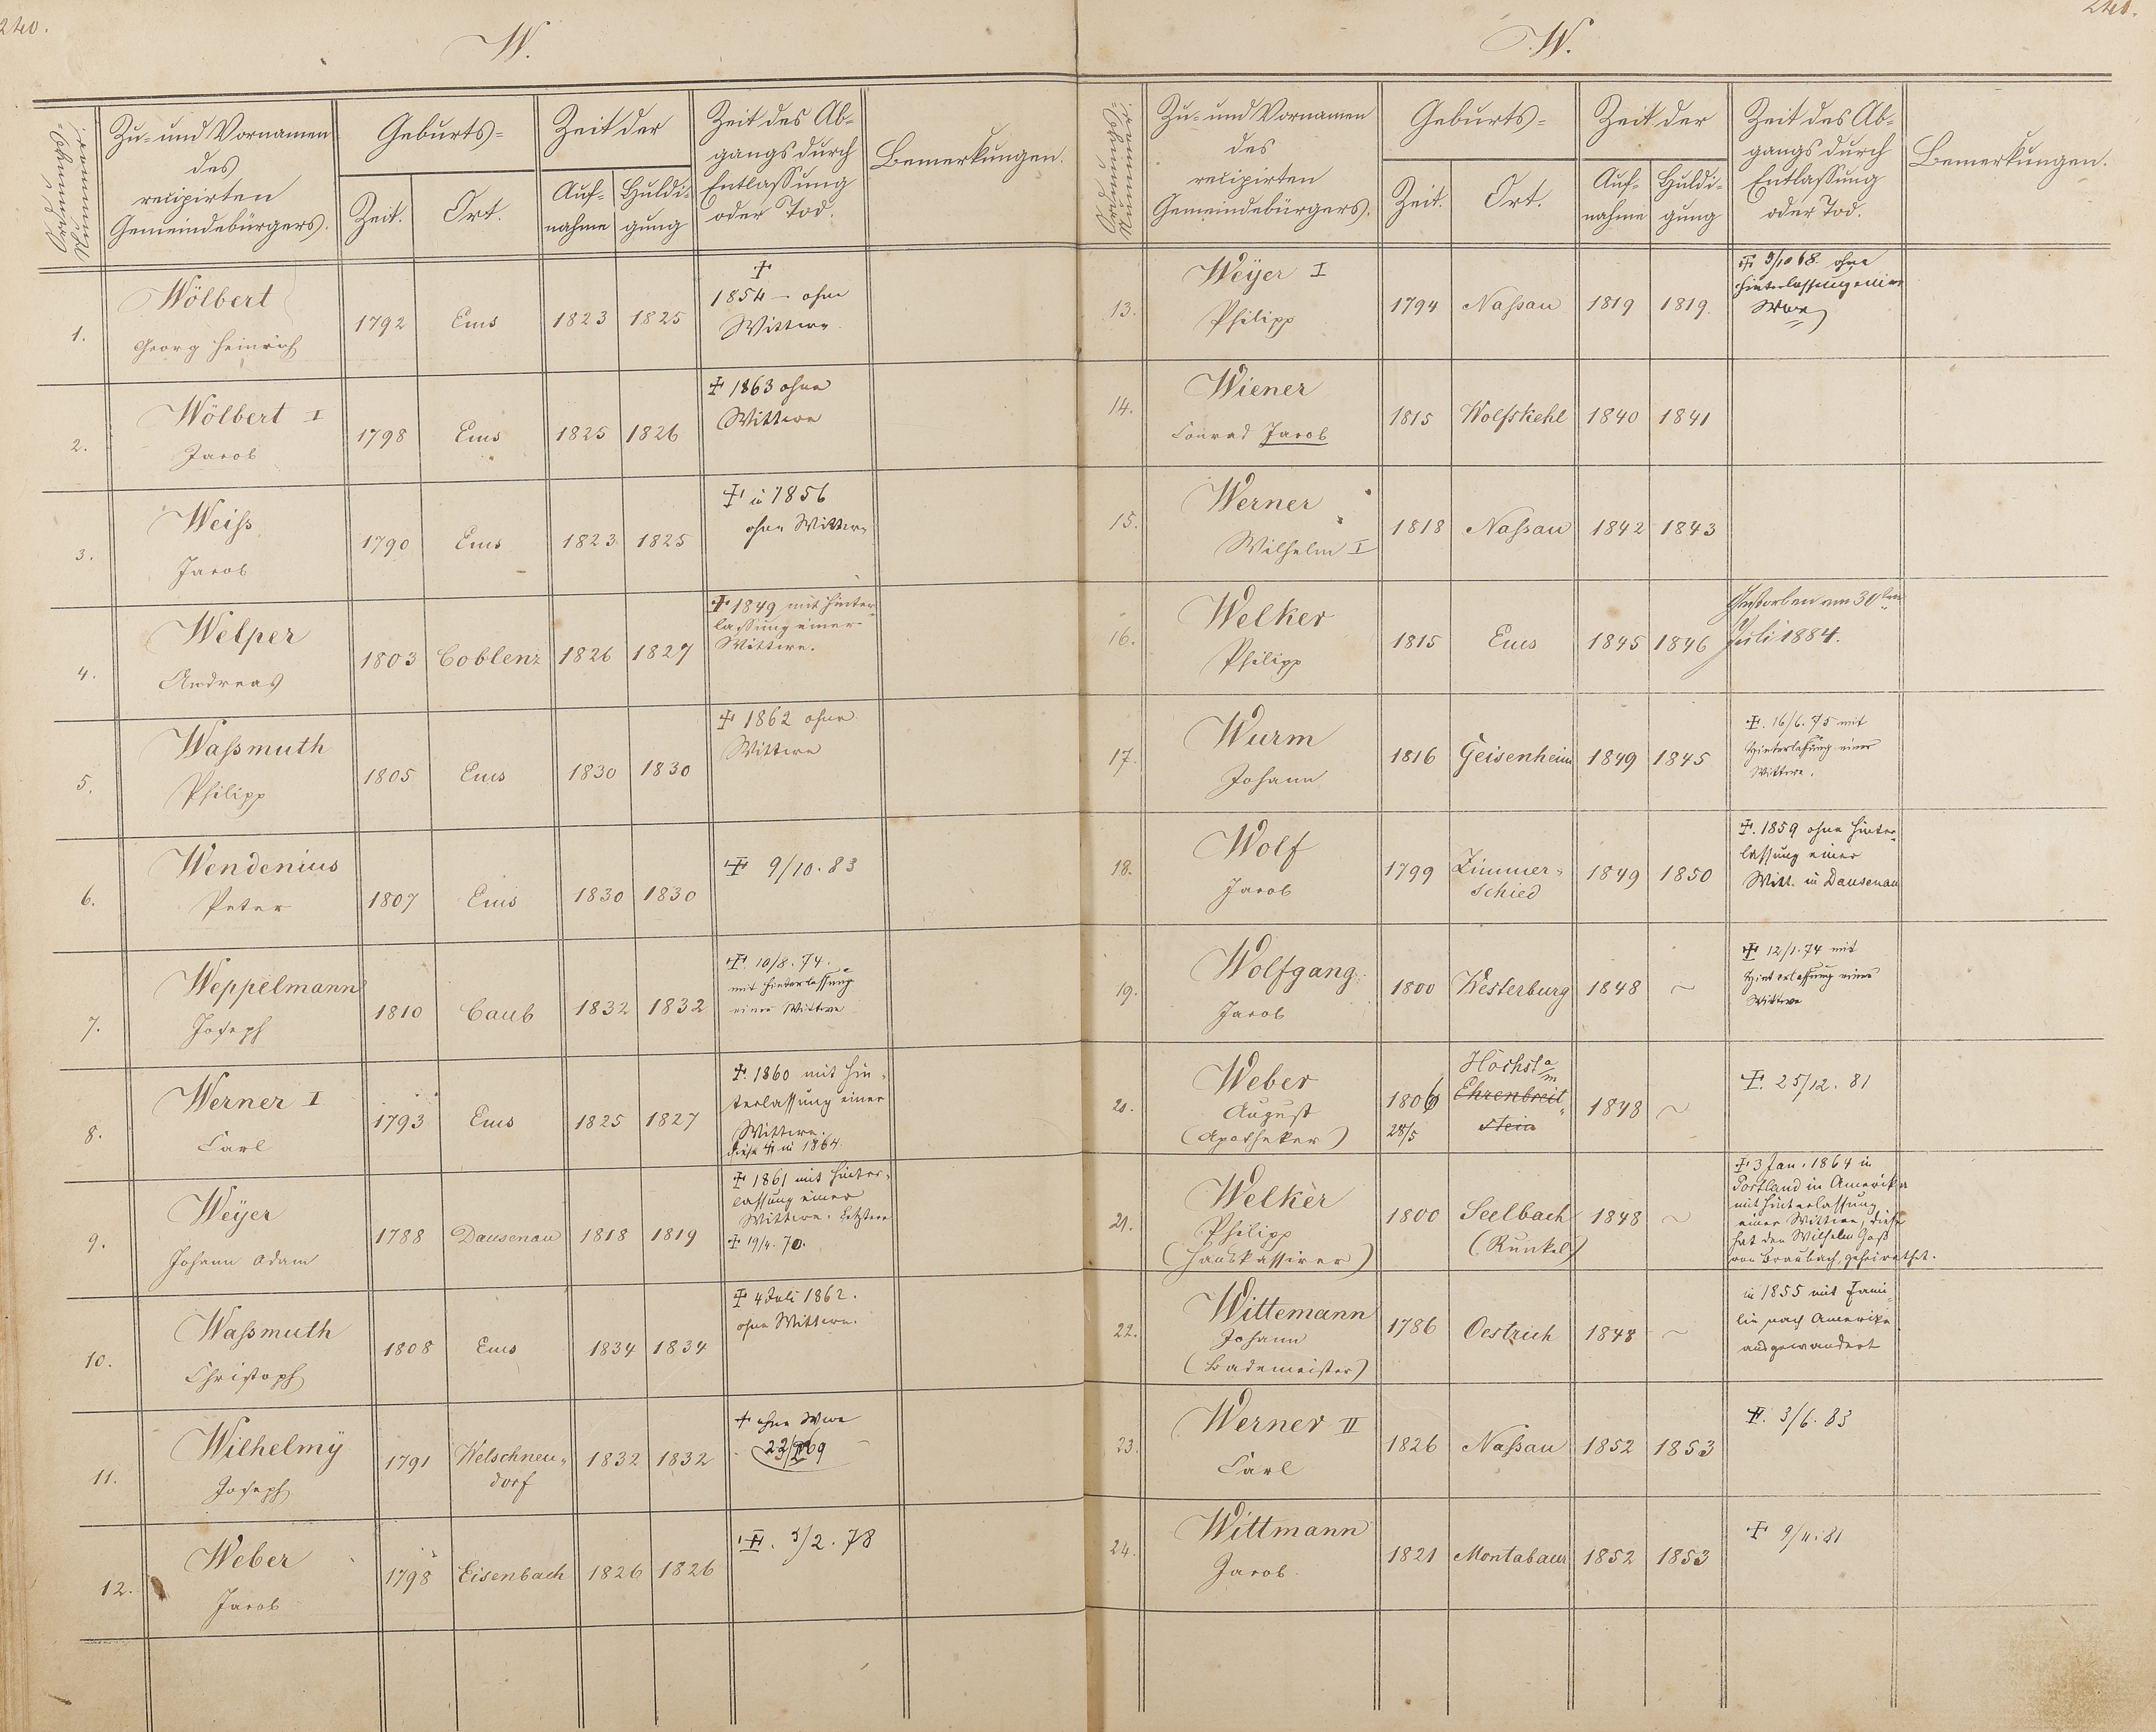 240.
W.
Ordnungs-
Nummer.
Zu- und Vornamen
des
recipirten
Gemeindebürgers.
Geburts-
Zeit.
Ort.
Zeit der
Auf-
nahme
Huldi-
gung
Zeit des Ab-
gangs durch
Entlassung
oder Tod.
Bemerkungen.
1.
Wölbert
Georg Heinrich
1792
Ems
1823
1825
†
1854 – ohne
Wittwe.
2.
Wölbert I
Jacob
1798
Ems
1825
1826
† 1863 ohne
Wittwe
3.
Weiss
Jacob
1790
Ems
1823
1825
† in 1856
ohne Wittwe
4.
Welper
Andreas
1803
Coblenz
1826
1827
† 1849 mit Hinter-
lassung einer
Wittwe.
5.
Wassmuth
Philipp
1805
Ems
1830
1830
† 1862 ohne
Wittwe
6.
Wendenius
Peter
1807
Ems
1830
1830
† 9/10. 83
7.
Weppelmann
Joseph
1810
Caub
1832
1832
† 10/8. 74.
mit Hinterlassung
einer Wittwe
8.
Werner I
Carl
1793
Ems
1825
1827
† 1860 mit Hin-
terlassung einer
Wittwe.
diese † in 1864.
9.
Weÿer
Johann Adam
1788
Dausenau
1818
1819
† 1861 mit Hinter-
lassung einer
Wittwe. Letztere
† 19/4. 70.
10.
Wassmuth
Christoph
1808
Ems
1834
1834
† 4 Juli 1862.
ohne Wittwe.
11.
Wilhelmÿ
Joseph
1791
Welschneu-
dorf
1832
1832
† ohne Wwe
12.
Weber
Jacob
1798
Eisenbach
1826
1826
†. 3/2. 78
241.
W.
Ordnungs-
Nummer.
Zu- und Vornamen
des
recipirten
Gemeindebürgers.
Geburts-
Zeit.
Ort.
Zeit der
Auf-
nahme
Huldi-
gung
Zeit des Ab-
gangs durch
Entlassung
oder Tod.
Bemerkungen.
13.
Weÿer I
Philipp
1794
Nassau
1819
1819.
† 9/10 68. ohne
Hinterlassung einer
Wwe
14.
Wiener
Conrad Jacob
1815
Wolfskehl
1840
1841
15.
Werner
Wilhelm I
1818
Nassau
1842
1843
16.
Welker
Philipp
1815
Ems
1845
1846
Gestorben am 30ten
Juli 1884.
17.
Wurm
Johann
1816
Geisenheim
1849
1845
†. 16/6. 75 mit
Hinterlassung einer
Wittwe.
18.
Wolf
Jacob
1799
Zimmer-
schied
1849
1850
†. 1859 ohne Hinter-
lassung einer
Witt. in Dausenau
19.
Wolfgang
Jacob
1800
Westerburg
1848
~
† 12/1. 74 mit
Hinterlassung einer
Wittwe
20.
Weber
August
(Apotheker)
1806
28/5
Höchst a/m
Ehrenbreit-
stein
1848
~
†. 25/12. 81
21.
Welker
Philipp
(Hauskassirer)
1800
Seelbach
(Runkel)
1848
~
† 3 Jan. 1864 in
Portland in Amerika
mit Hinterlassung
einer Wittwe, diese
hat den Wilhelm Gass
von Braubach geheirathet.
22.
Wittemann
Johann
(Bademeister)
1786
Oestrich
1848
~
in 1855 mit Fami-
lie nach Amerika
ausgewandert
23.
Werner II
Carl
1826
Nassau
1852
1853
†. 3/6. 83
24.
Wittmann
Jacob
1821
Montabaur
1852
1853
† 9/11. 81